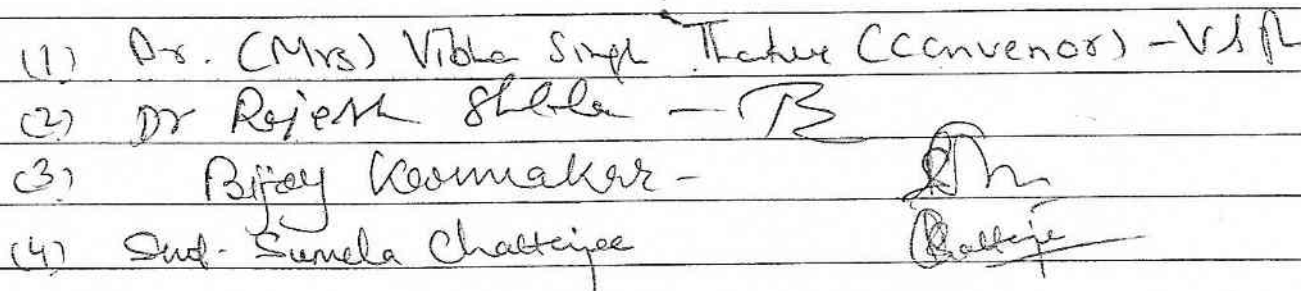 (1) Dr. (Mrs) Vibha Singh Thakur (Convenor) -
(2) Dr Rajesh Shukla -
(3) Bijoy Karmakar -
(4) Smt. Sumela Chatterjee Chatterje